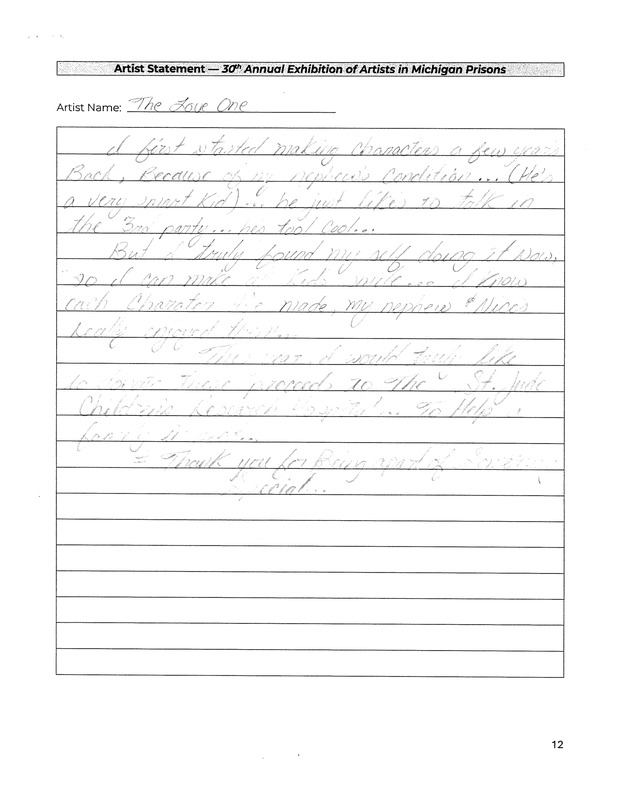 Artist Statement — 30th Annual Exhibition of Artists in Michigan Prisons
Artist Name: The Love One
I first started making Characters a few years
Back, Because of my nephew's Condition... (He's
a very smart Kid)... he just likes to talk in
the 3rd party... hes tool Cool...
But I truly found my self doing it Now,
so I can make Kids smile... I Know
each Charater I've made, my nephew & Nices
Really enjoyed them...
This year I would truly like
to donate these proceeds to "The St. Jude
Children's Research Hospital"... To Help a
family in
= Thank you for Being apart of
Special...
12